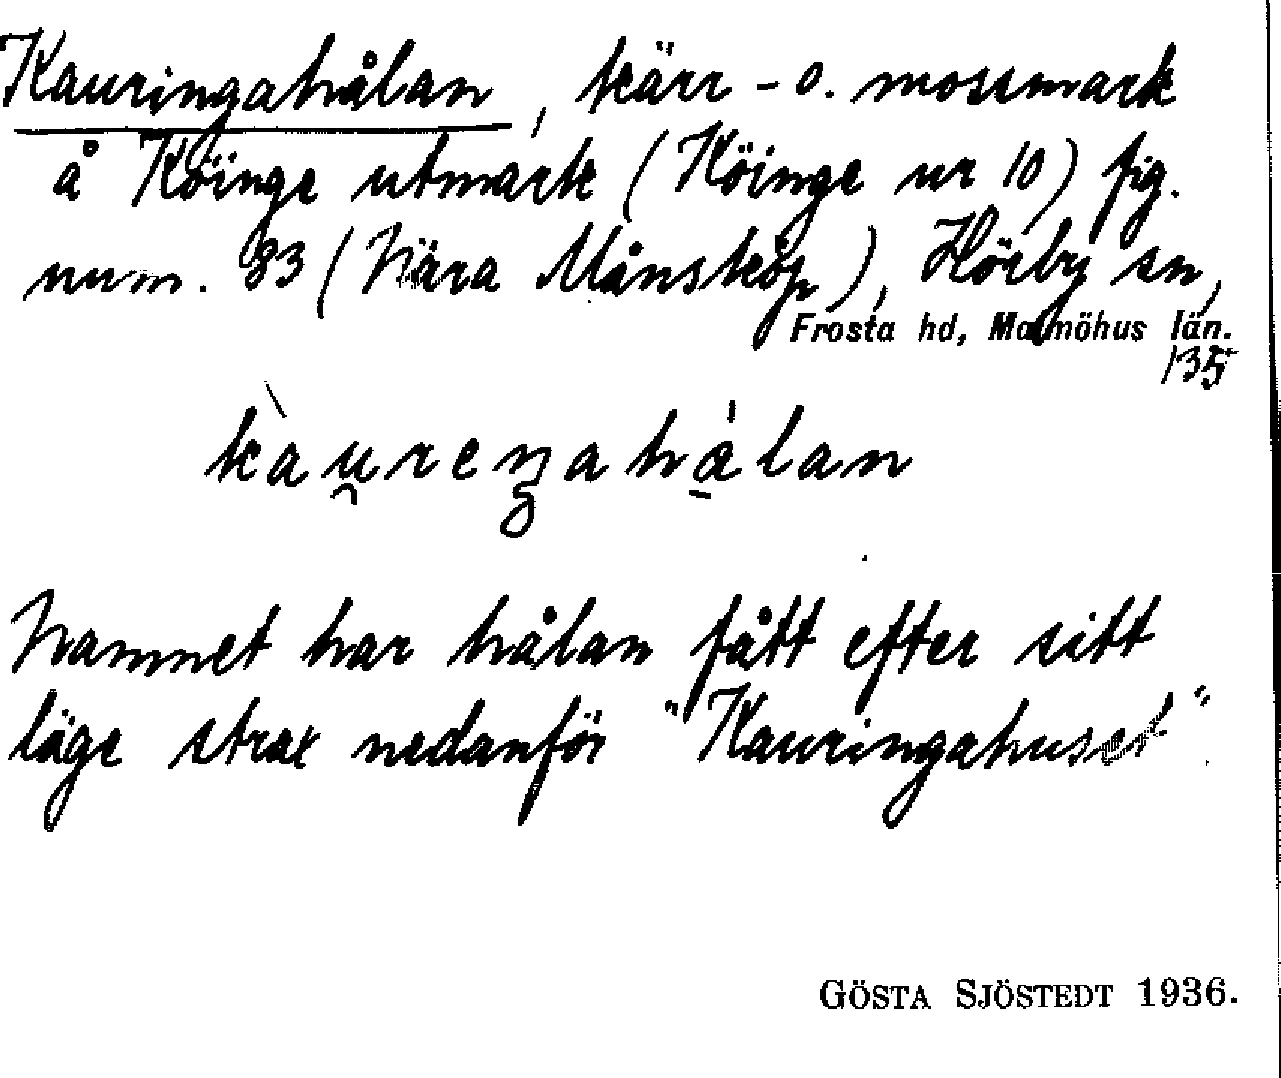 Kauringahålan, kärr- o. mossmark
å Köinge utmark (Köinge nr 10) fig.
num. 83 (Nära Månsköp), Hörby sn,
Frosta hd, Malmöhus län.
135
kàu̯reŋahǻ̱lan
Namnet har hålan fått efter sitt
läge strax nedanför "Kauringahuset".
GÖSTA SJÖSTEDT 1936.